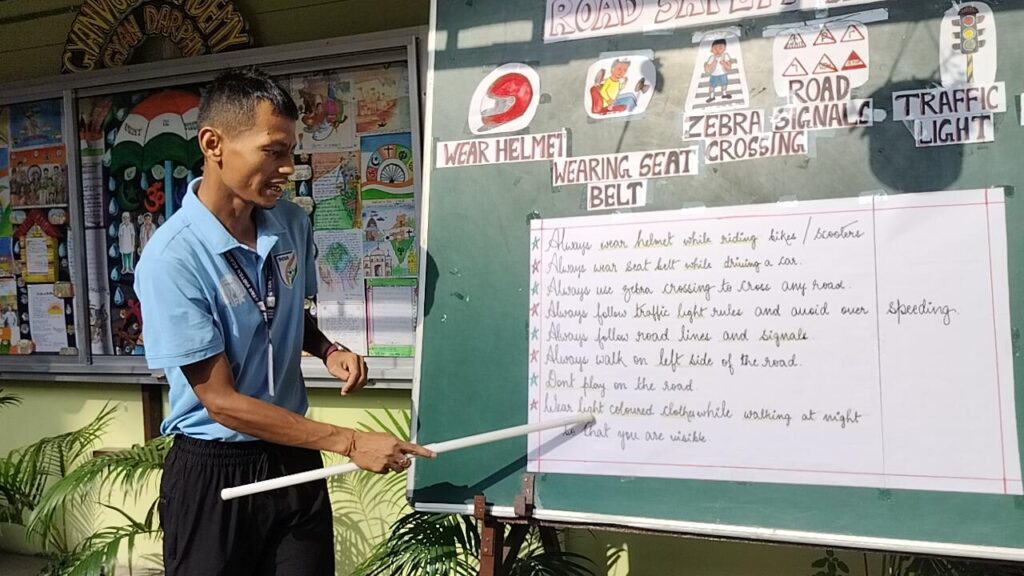 GYAN DARPAN
ROAD SAFETY
WEAR HELMET
WEARING SEAT
BELT
ZEBRA
CROSSING
ROAD
SIGNALS
TRAFFIC
LIGHT
Always wear helmet while riding bikes / scooters
Always wear seat belt while driving a car.
Always use zebra crossing to cross any road.
Always follow traffic light rules and avoid over speeding.
Always follow road lines and signals
Always walk on left side of the road.
Dont play on the road.
Wear light coloured clothes while walking at night
so that you are visible